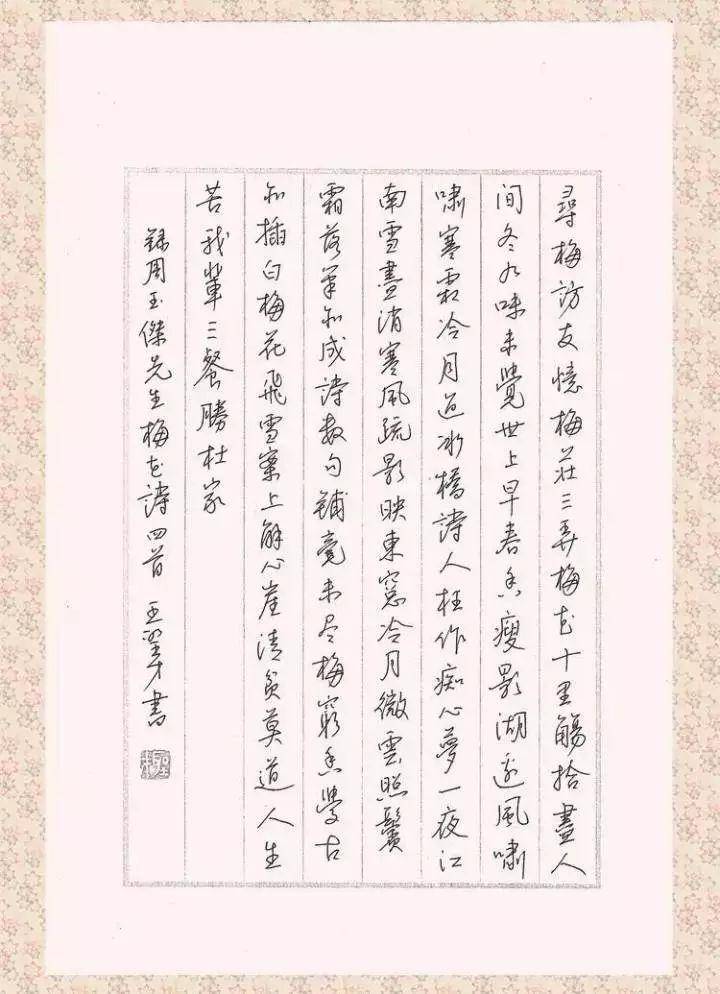 尋梅訪友憶梅莊三弄梅花十里觴拾盡人
間冬九味未覺世上早春香瘦影湖邊風嘯
嘯寒霜冷月過冰橋詩人枉作痴心夢一夜江
南雪盡消寒風疏影映東窓冷月微雲照鬢
霜落筆知成詩數句鋪毫未尽梅窮香學古
知插白梅花飛雪案上解心崖清貧莫道人生
苦我輩三餐勝杜家
錄周玉傑先生梅花詩四首 王翠書